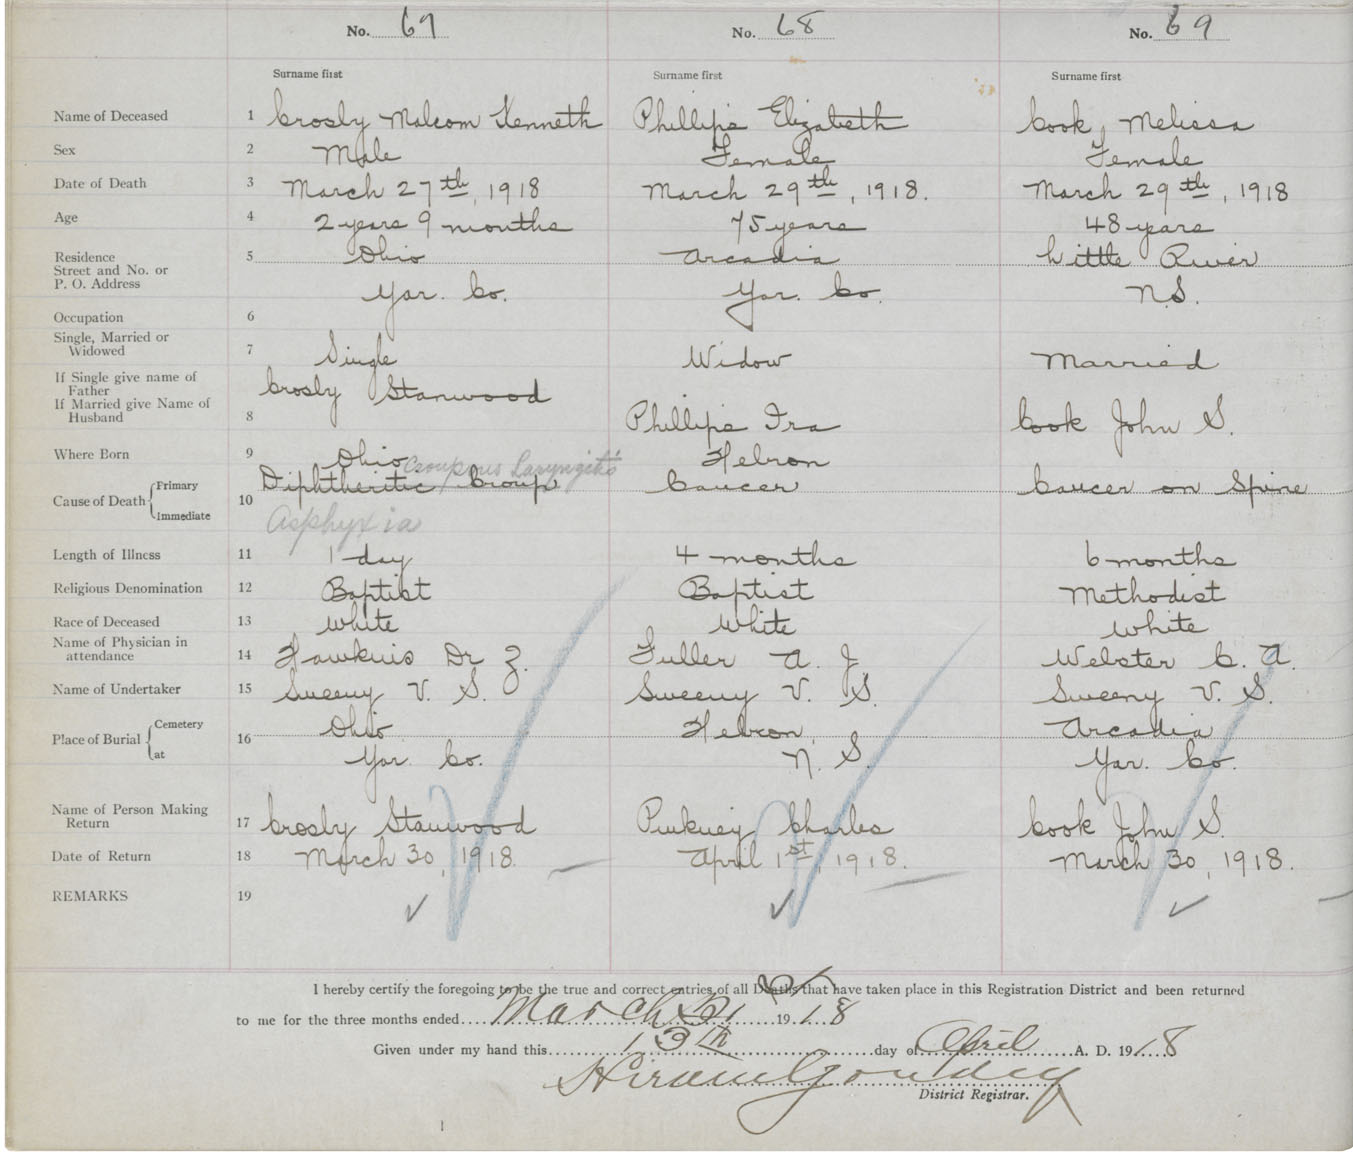 No. 67 No. 68 No. 69
Surname first Surname first Surname first
Name of Deceased 1 Crosby Malcom Kenneth Phillips Elizabeth Cook, Melissa
Sex 2 Male Female Female
Date of Death 3 March 27th, 1918 March 29th, 1918. March 29th, 1918
Age 4 2 years 9 months 75 years 48 years
Residence 5 Ohio Arcadia Little River
Street and No. or
P. O. Address Yar. Co. Yar. Co. N.S.
Occupation 6
Single, Married or
Widowed 7 Single Widow Married
If Single give name of
Father Crosby Stanwood
If Married give Name of
Husband 8 Phillips Ira Cook John S.
Where Born 9 Ohio Hebron
Croupous Laryngitis
Cause of Death Primary Diphtheritic Croup Cancer Cancer on Spine
Immediate 10 Asphyxia
Length of Illness 11 1 day 4 months 6 months
Religious Denomination 12 Baptist Baptist Methodist
Race of Deceased 13 White White White
Name of Physician in
attendance 14 Hawkins Dr Z. Fuller A. J Webster C. A.
Name of Undertaker 15 Sweeny V. S. Sweeny V. S. Sweeny V. S.
Place of Burial Cemetery 16 Ohio Hebron, Arcadia
at Yar. Co. N. S. Yar. Co.
Name of Person Making
Return 17 Crosby Stanwood Pinkney Charles Cook John S.
Date of Return 18 March 30, 1918. April 1st, 1918. March 30, 1918.
REMARKS 19
I hereby certify the foregoing to be the true and correct entries of all Deaths that have taken place in this Registration District and been returned
to me for the three months ended March 31 1918
Given under my hand this 13th day of April A. D. 1918
Hiram Goudey
District Registrar.